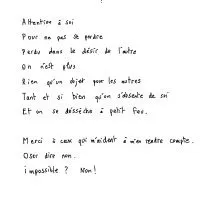 Attention à soi
Pour ne pas se perdre
Perdu dans le désir de l'autre
On n'est plus
Rien qu'un objet pour les autres
Tant et si bien qu'on s'absente de soi
Et on se dessèche à petit feu.
Merci à ceux qui m'aident à m'en rendre compte.
Oser dire non.
impossible ? Non!